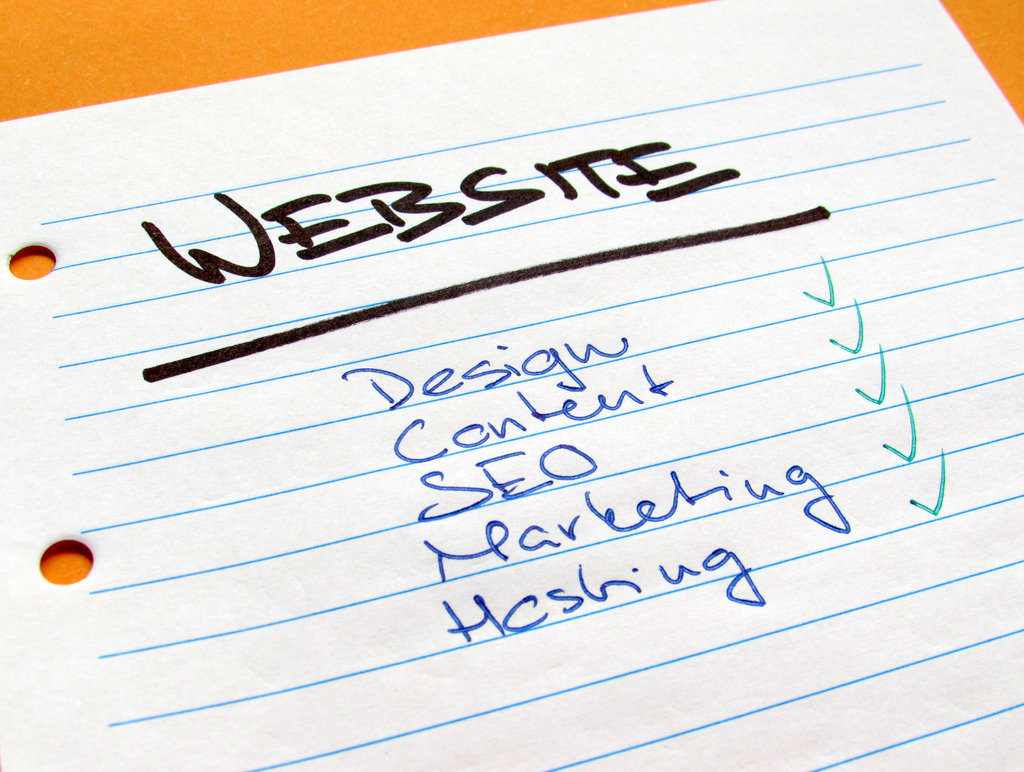 WEBSITE
Design
Content
SEO
Marketing
Hosting